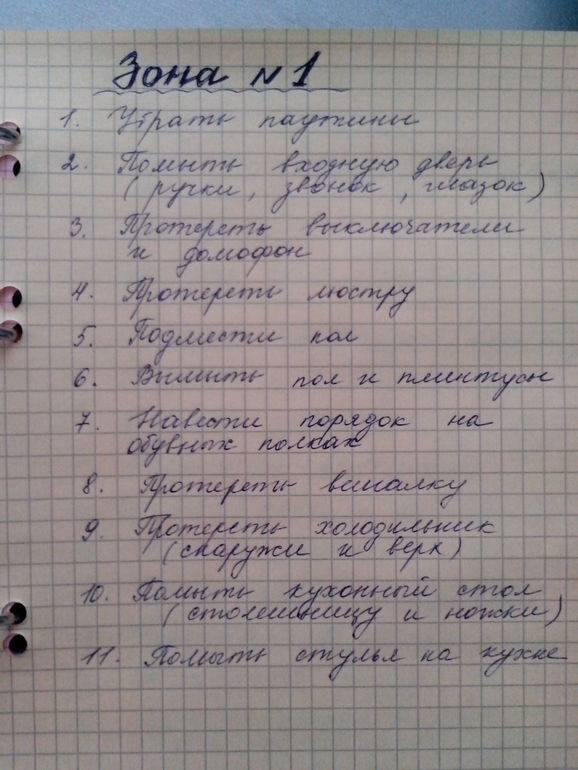 Зона №1
1. Убрать паутины
2. Помыть входную дверь
(ручки, звонок, глазок)
3. Протереть выключатели
и домофон
4. Протереть люстру
5. Подмести пол
6. Вымыть пол и плинтусы
7. Навести порядок на
обувных полках
8. Протереть вешалку
9. Протереть холодильник
(снаружи и верх)
10. Помыть кухонный стол
(столешницу и ножки)
11. Помыть стулья на кухне